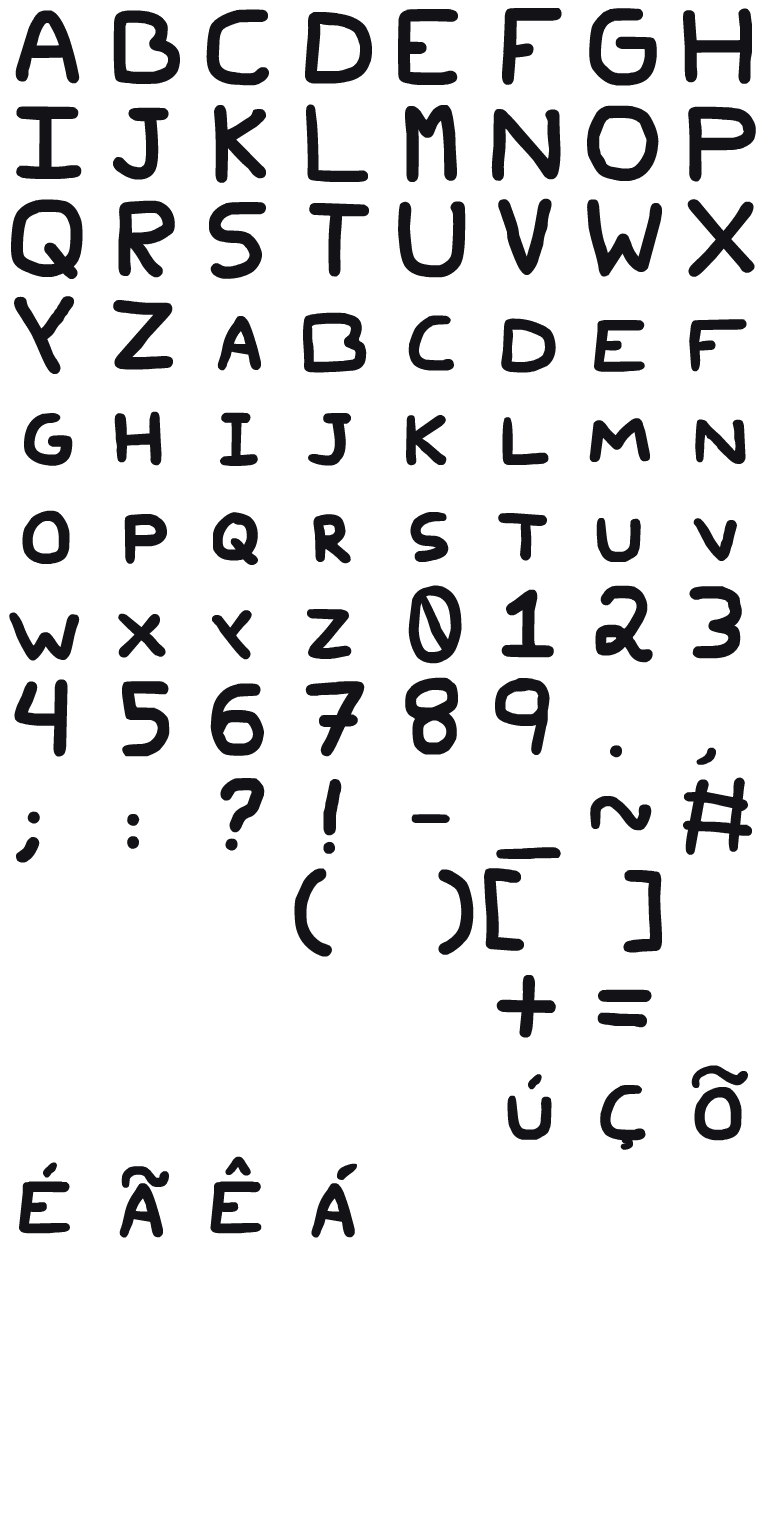 A B C D E F G H
I J K L M N O P
Q R S T U V W X
Y Z A B C D E F
G H I J K L M N
O P Q R S T U V
W X Y Z 0 1 2 3
4 5 6 7 8 9 . ,
; : ? ! - _ ~ #
( ) [ ]
+ =
Ú Ç Õ
É Ã Ê Á